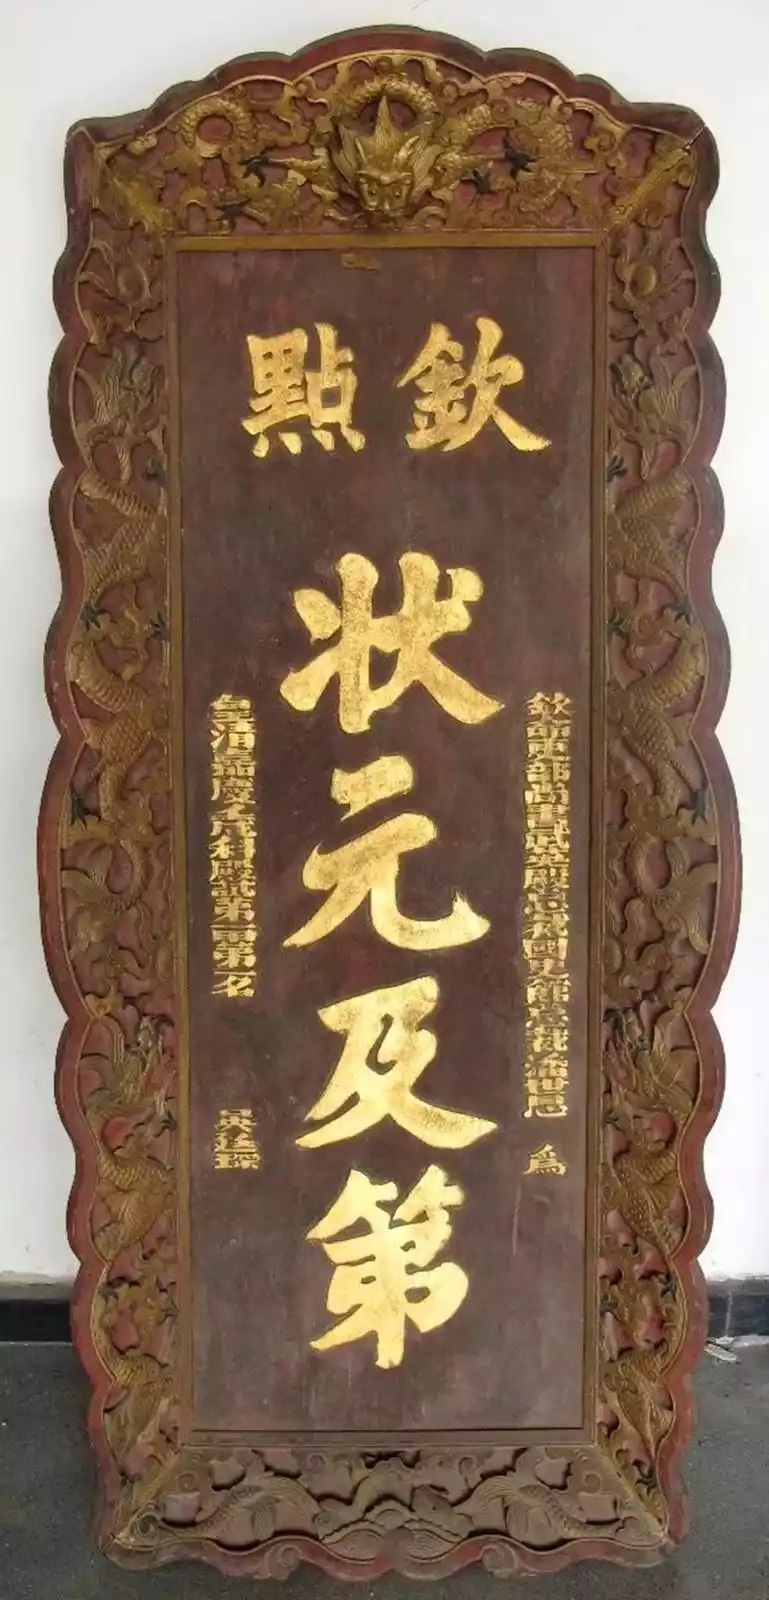 欽點
狀元及第
欽命吏部尚書武英殿總裁國史館總裁潘世恩 為
皇清嘉慶壬戌科殿試第一甲第一名 吳廷琛